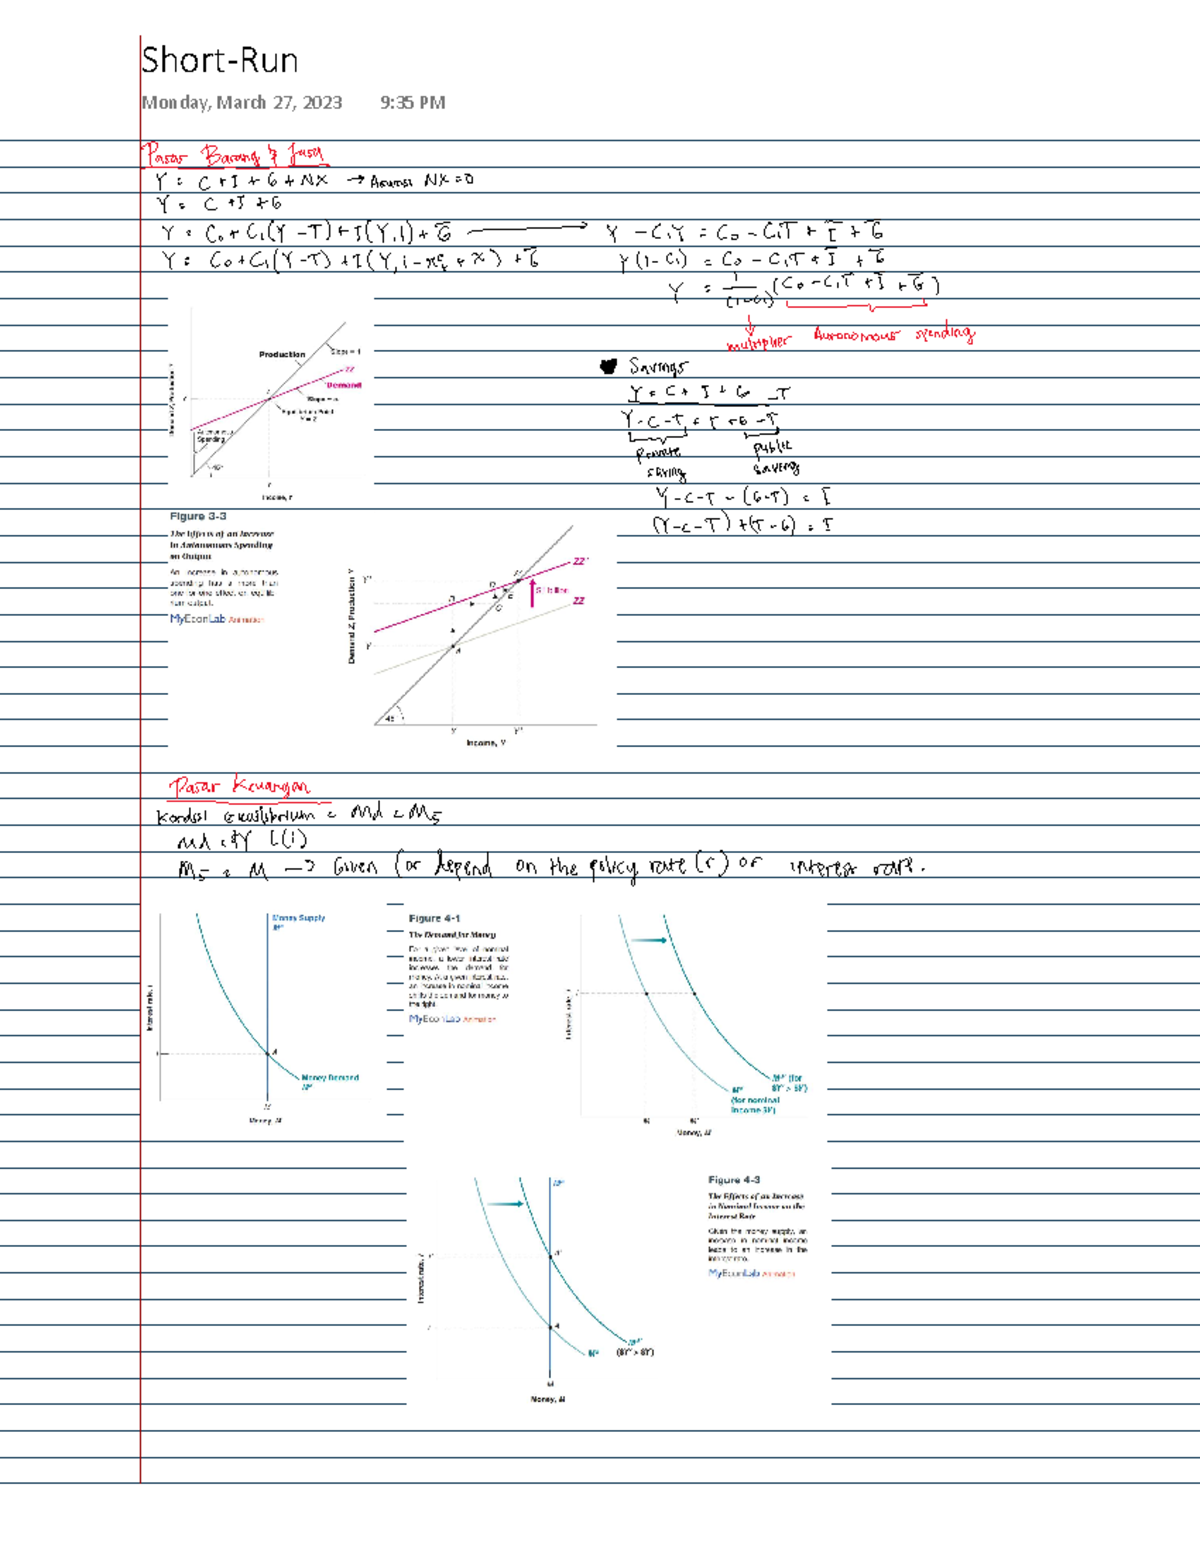 Short-Run
Monday, March 27, 2023 9:35 PM
Pasar Barang & Jasa
Y = C + I + G + NX → Asumsi NX = 0
Y = C + I + G
Y = C₀ + C₁(Y - T) + I(Y, i) + G̅
Y = C₀ + C₁(Y - T) + I(Y, i - πᵉₜ + x) + G̅
Y - C₁Y = C₀ - C₁T + I̅ + G̅
Y(1 - C₁) = C₀ - C₁T + I̅ + G̅
Y = 1/(1-C₁) (C₀ - C₁T + I̅ + G̅)
multiplier Autonomous spending
Savings
Y = C + I + G - T
Y - C - T = I + G - T
Private saving
public saving
Y - C - T - (G - T) = I
(Y - C - T) + (T - G) = I
Demand Z, Production Y
Production
Slope = 1
ZZ
Demand
Equilibrium Point
Y = Z
Autonomous
Spending
45°
Y
Income, Y
Figure 3-3
The Effects of an Increase
in Autonomous Spending
on Output
An increase in autonomous
spending has a more than
one-for-one effect on equilib-
rium output.
MyEconLab Animation
Demand Z, Production Y
ZZ'
$1 billion
ZZ
Y'
Y
A
45°
Y Y'
Income, Y
Pasar Keuangan
Kondisi Equilibrium = Md = Ms
Md = $Y L(i)
Ms = M → Given (or depend on the policy rate (r) or interest rate.
Money Supply
Mˢ
Interest rate, i
A
Money Demand
Mᵈ
M
Money, M
Figure 4-1
The Demand for Money
For a given level of nominal
income, a lower interest rate
increases the demand for
money. At a given interest rate,
an increase in nominal income
shifts the demand for money to
the right.
MyEconLab Animation
Interest rate, i
Mᵈ' (for
$Y' > $Y)
Mᵈ
(for nominal
income $Y)
M M'
Money, M
Mˢ
Interest rate, i
A'
A
Mᵈ'
Mᵈ ($Y' > $Y)
M
Money, M
Figure 4-3
The Effects of an Increase
in Nominal Income on the
Interest Rate
Given the money supply, an
increase in nominal income
leads to an increase in the
interest rate.
MyEconLab Animation